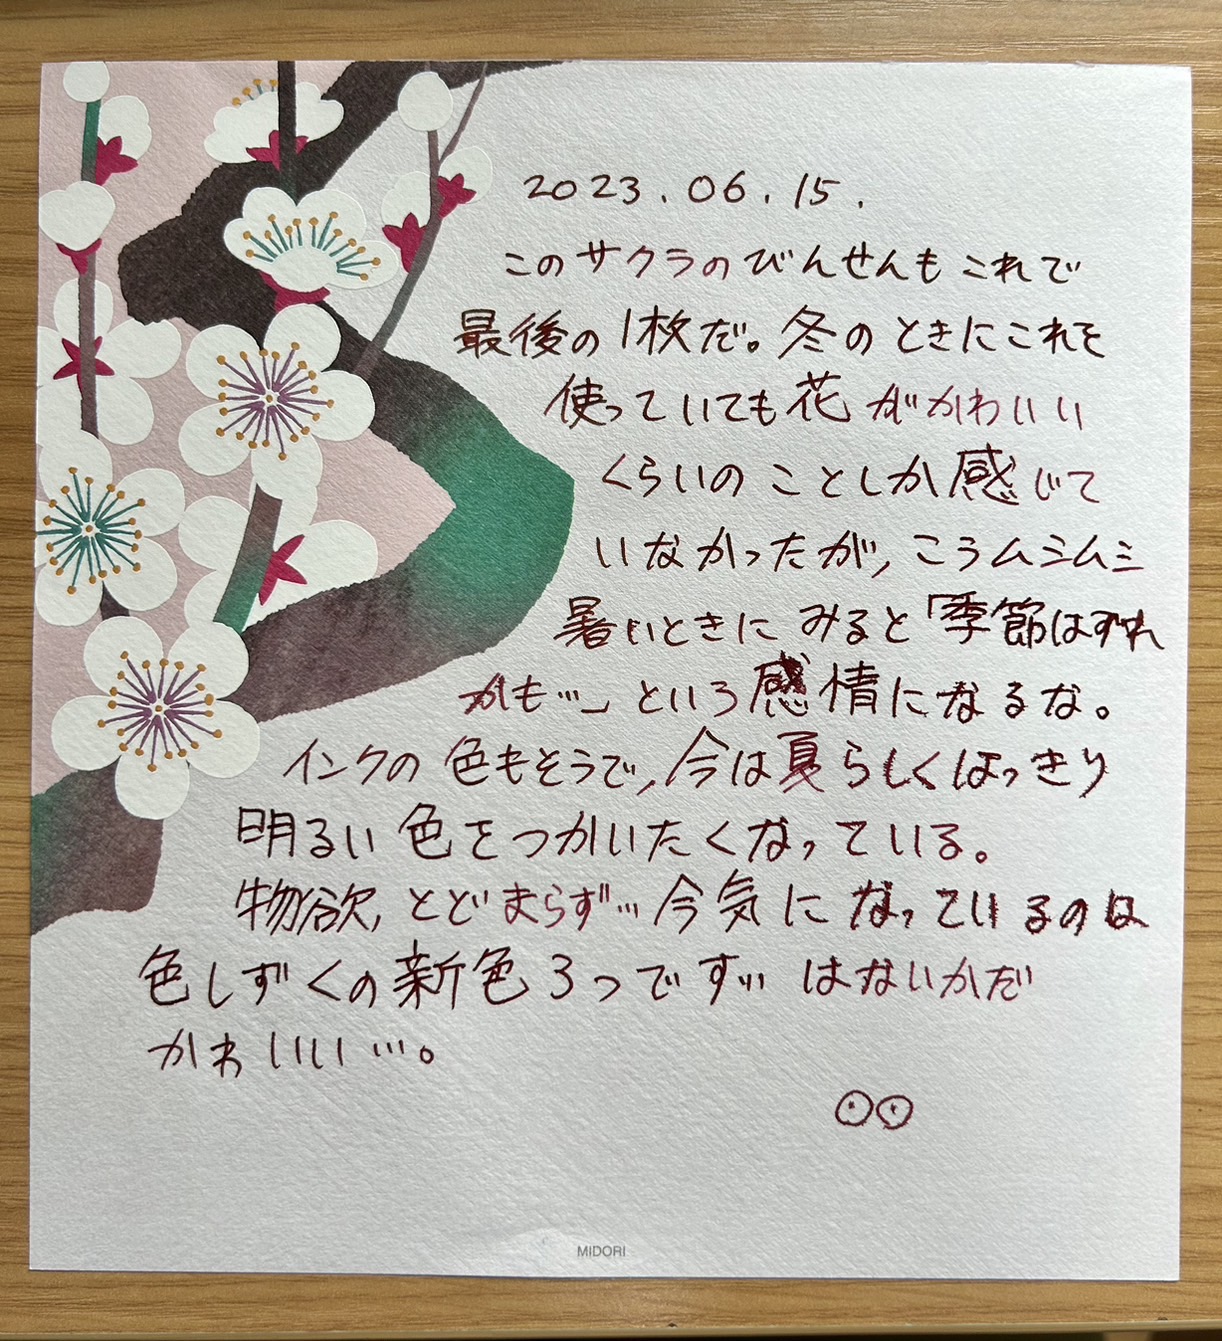 2023.06.15.
このサクラのびんせんもこれで
最後の1枚だ。冬のときにこれを
使っていても花がかわいい
くらいのことしか感じて
いなかったが、こうムシムシ
暑いときにみると「季節はずれ
かも…」という感情になるな。
インクの色もそうで、今は夏らしくはっきり
明るい色をつかいたくなっている。
物欲、とどまらず…今気になっているのは
色しずくの新色3つです… はないかだ
かわいい…。
MIDORI